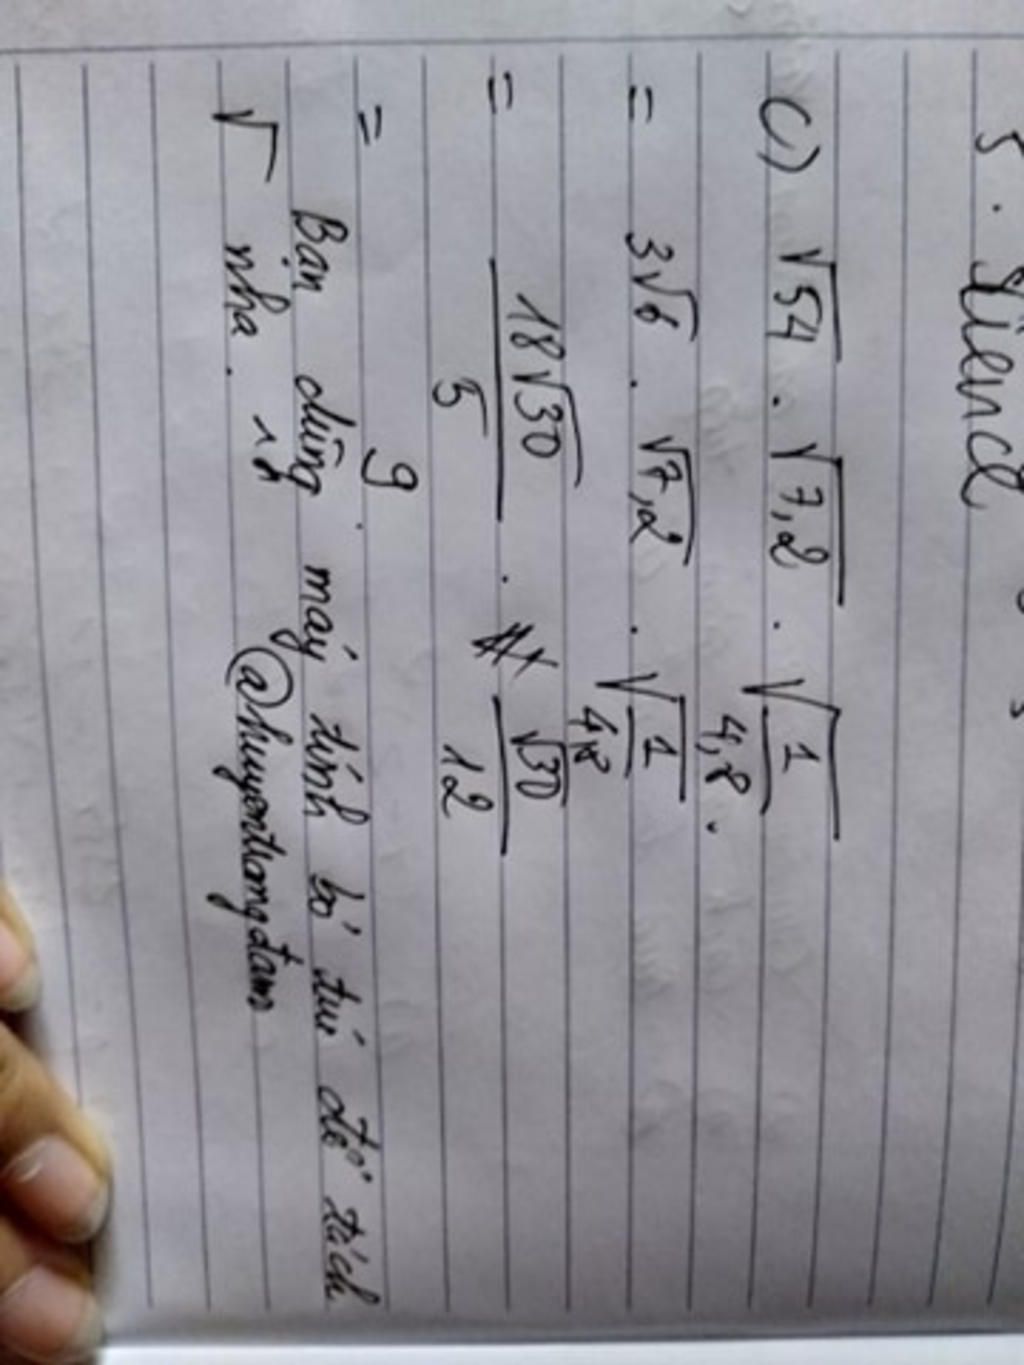 5. Silence
c) √54 . √7,2 . √(1/4,8).
= 3√6 . √7,2 . √(1/4,8)
= 18√30/5 . √30/12
= 9.
Bạn dùng máy tính bỏ túi để tách
√ nha.
@huyenthongdam